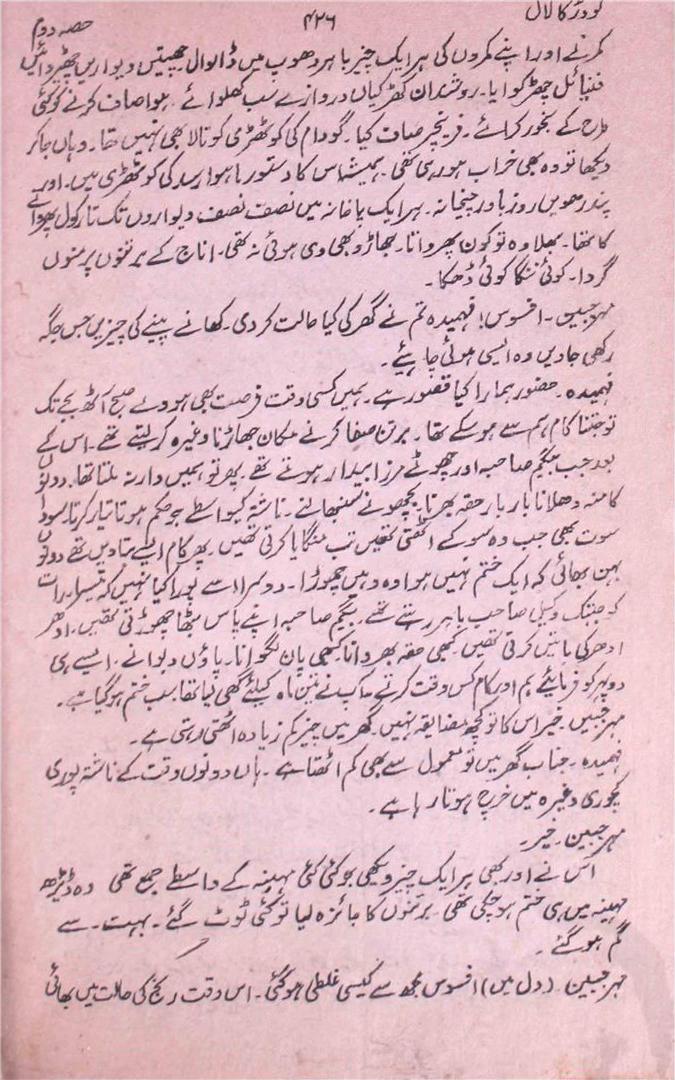 گودڑ کا لال ۴۲۶ حصہ دوم
کرنے اور اپنے کمروں کی ہر ایک چیز باہر دھوپ میں ڈالوا دی۔ چھتیں دیواریں جھڑوائیں
فنیائل چھڑکوایا۔ روشندان کھڑکیاں دروازے سب کھلوائے ہوا صاف کرنے کو کئی
طرح کے بخور کرائے۔ فرنیچر صاف کیا۔ گودام کی کوٹھڑی کو تالا بھی نہیں تھا۔ وہاں جا کر
دیکھا تو وہ بھی خراب ہو رہی تھی۔ ہمیشہ اس کا دستور ماہوار رسد کی کوٹھڑی میں۔ اور
پندرھویں روز باورچیخانہ۔ ہر ایک پاخانہ میں نصف نصف دیواروں تک تارکول پھروانے
کا تھا۔ بھلا وہ تو کون پھرواتا۔ جھاڑو بھی دی ہوئی نہ تھی۔ اناج کے برتنوں پر منوں
گردا۔ کوئی ننگا کوئی ڈھکا۔
مہرجبین۔ افسوس! فہمیدہ تم نے گھر کی کیا حالت کر دی۔ کھانے پینے کی چیزیں جس جگہ
رکھی جاویں وہ ایسی ہوئی چاہیئے۔
فہمیدہ۔ حضور ہمارا کیا قصور ہے۔ ہمیں کسی وقت فرصت بھی ہووے صبح آٹھ بجے تک
تو جتنا کام ہم سے ہو سکے تھا۔ برتن صفا کرنے مکان جھاڑنا وغیرہ کر لیتے تھے۔ اس کے
بعد جب بیگم صاحبہ اور چھوٹے مرزا بیدار ہوتے تھے۔ پھر تو ہمیں وار نہ ملتا تھا۔ دونوں
کا منہ دھلانا بار بار حقہ بھرنا۔ بچھونے سنبھالنے۔ ناشتہ کیواسطے جو حکم ہوتا تیار کرنا۔ سودا
سوت بھی جب وہ سو کے اٹھتی تھیں تب منگایا کرتی تھیں۔ پھر کام ایسے بتا دیں تھے دونوں
بہن بھائی کہ ایک ختم نہیں ہوا وہ وہیں چھوڑا۔ دوسرا اسے پورا کیا نہیں کہ تیسرا۔ رات
کو جبتک وکیل صاحب باہر رہتے تھے۔ بیگم صاحبہ اپنے پاس بٹھا چھوڑتی تھیں۔ ادھر
ادھر کی باتیں کرتی تھیں کبھی حقہ بھروانا کبھی پان لگوانا۔ پاؤں دبوانے۔ ایسے ہی
دوپہر کو فرمایئے ہم اور کام کس وقت کرتے آپ نے تین ماہ کیلئے گھی لیا تھا سب ختم ہو گیا ہے۔
مہرجبیں۔ خیر اس کا تو کچھ مضائقہ نہیں۔ گھر میں چیز کم زیادہ اٹھتی رہتی ہے۔
فہمیدہ۔ جناب گھر میں تو معمول سے بھی کم اٹھتا ہے۔ ہاں دونوں وقت کے ناشتہ پوری
کچوری وغیرہ میں خرچ ہوتا رہا ہے۔
مہرجبین۔ خیر۔
اس نے اور بھی ہر ایک چیز دیکھی جو کئی کئی مہینہ کے واسطے جمع تھی وہ ڈیڑھ
مہینہ میں ہی ختم ہو چکی تھی برتنوں کا جائزہ لیا تو کئی ٹوٹ گئے۔ بہت سے
گم ہو گئے۔
مہرجبین۔ (دل میں) افسوس مجھ سے کیسی غلطی ہو گئی۔ اس وقت رنج کی حالت میں بھائی